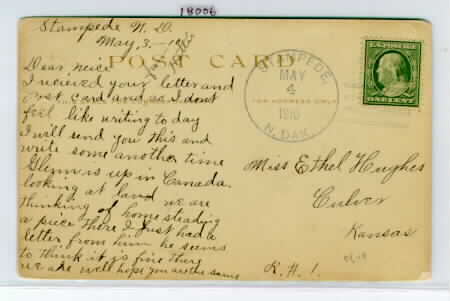 18006
Stampede N. D.
May, 3. - 10
POST CARD
Dear neice
I recieved your letter and
Post card and as I don't
feel like writing to day
I will send you this and
write some another time
Glenn is up in Canada.
looking at land we are
thinking of homesteading
a piece there I just had a
letter from him he seems
to think it is fine there
we are well hope you are the same
STAMPEDE,
MAY
4
1910
N. DAK.
FOR ADDRESS ONLY
Miss Ethel Hughes
Culver
Kansas
R. H. 1.